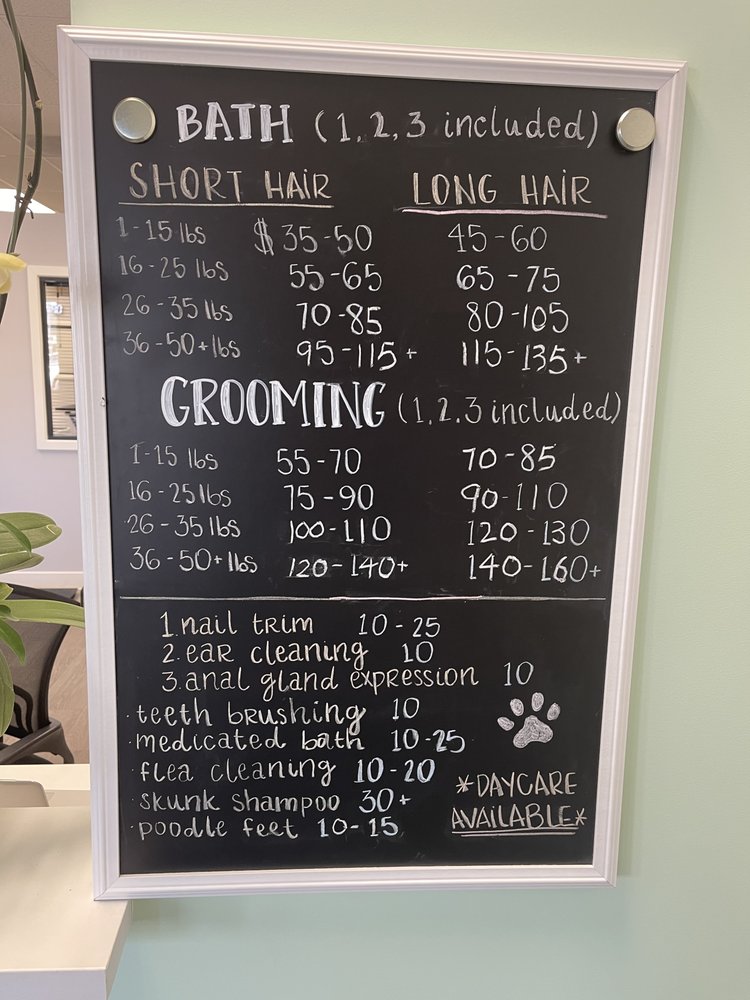 BATH (1, 2, 3 included)
SHORT HAIR LONG HAIR
1-15 lbs $35-50 45-60
16-25 lbs 55-65 65-75
26-35 lbs 70-85 80-105
36-50+lbs 95-115+ 115-135+
GROOMING (1,2,3 included)
1-15 lbs 55-70 70-85
16-25lbs 75-90 90-110
26-35 lbs 100-110 120-130
36-50+ lbs 120-140+ 140-160+
1. nail trim 10-25
2. ear cleaning 10
3. anal gland expression 10
· teeth brushing 10
· medicated bath 10-25
· flea cleaning 10-20
· skunk shampoo 30+
· poodle feet 10-15
*DAYCARE
AVAILABLE*